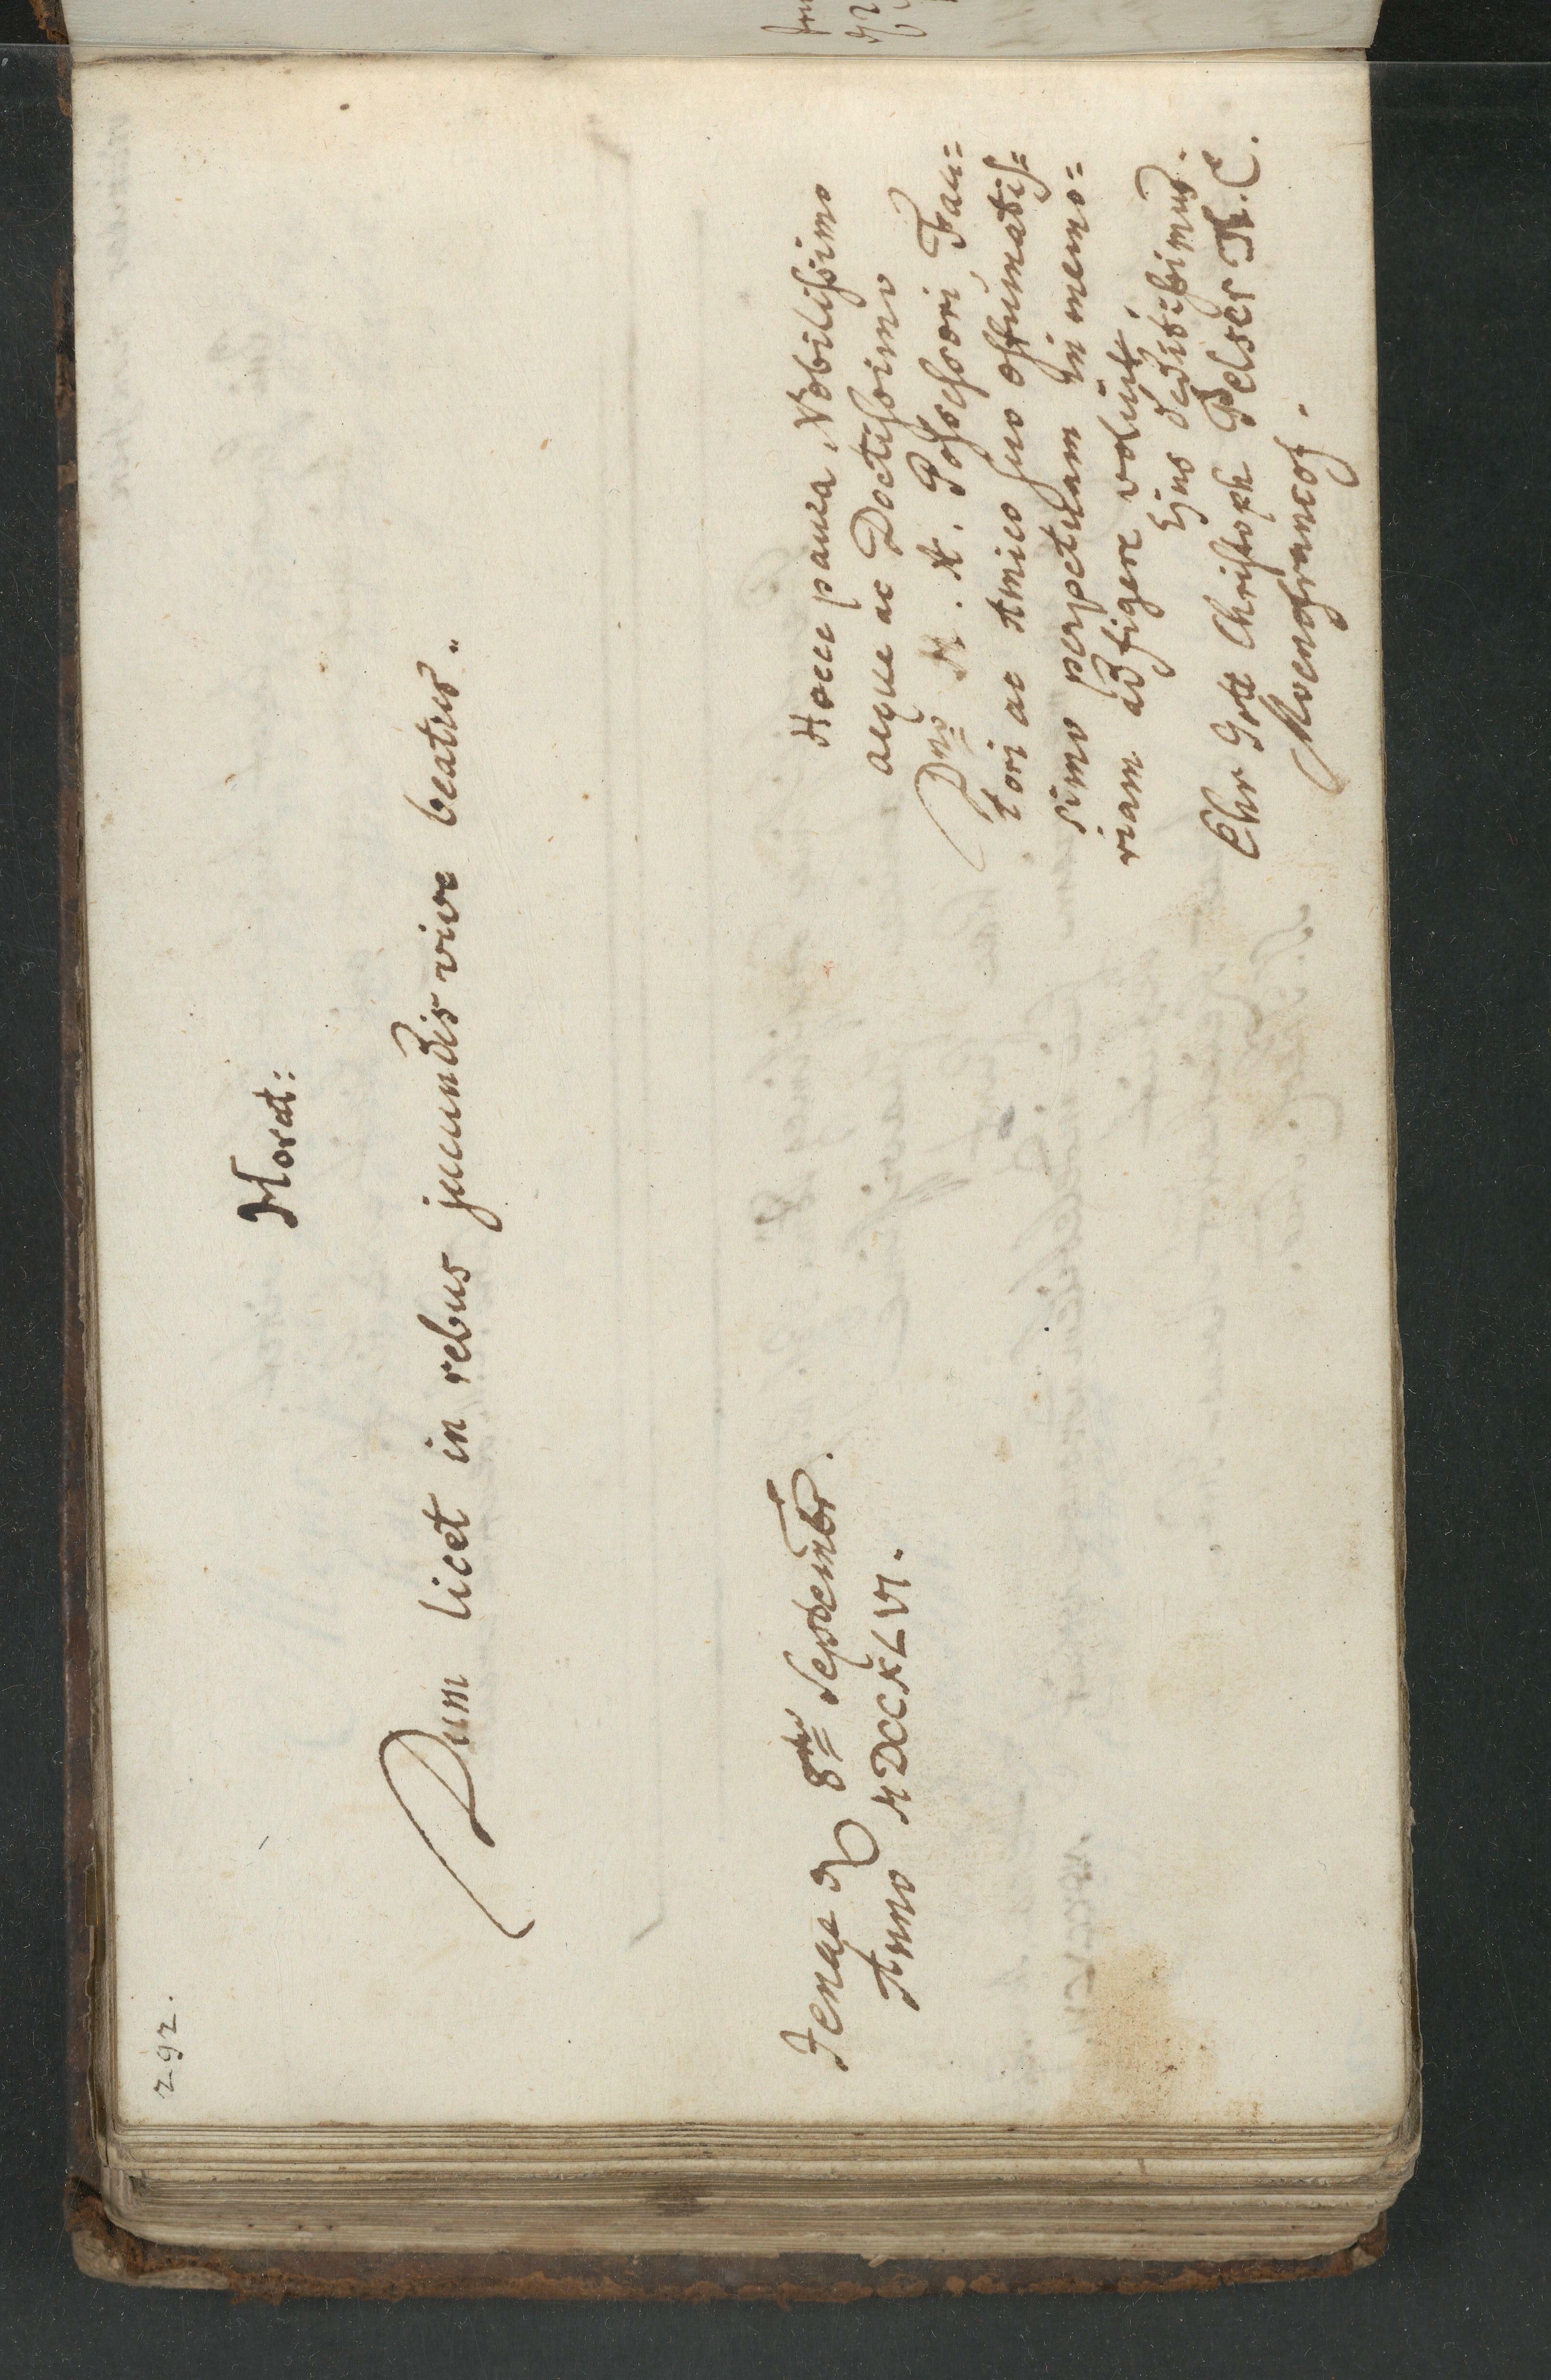 292.
Horat:
Dum licet in rebus jucundis vive beatus.
Jenae d 8tw Septembr.
Anno MDCCXLVI.
Haece pauca Nobilissimo
aeque ac Doctissimo
Dno H. A. Possessori, Fau=
tori ac Amico suo aestumatis=
simo perpetuam in memo=
riam adfigere voluit,
Ejus deditissimus.
Chr Gott Christoph Pelser Th. C.
Moenofrancof.